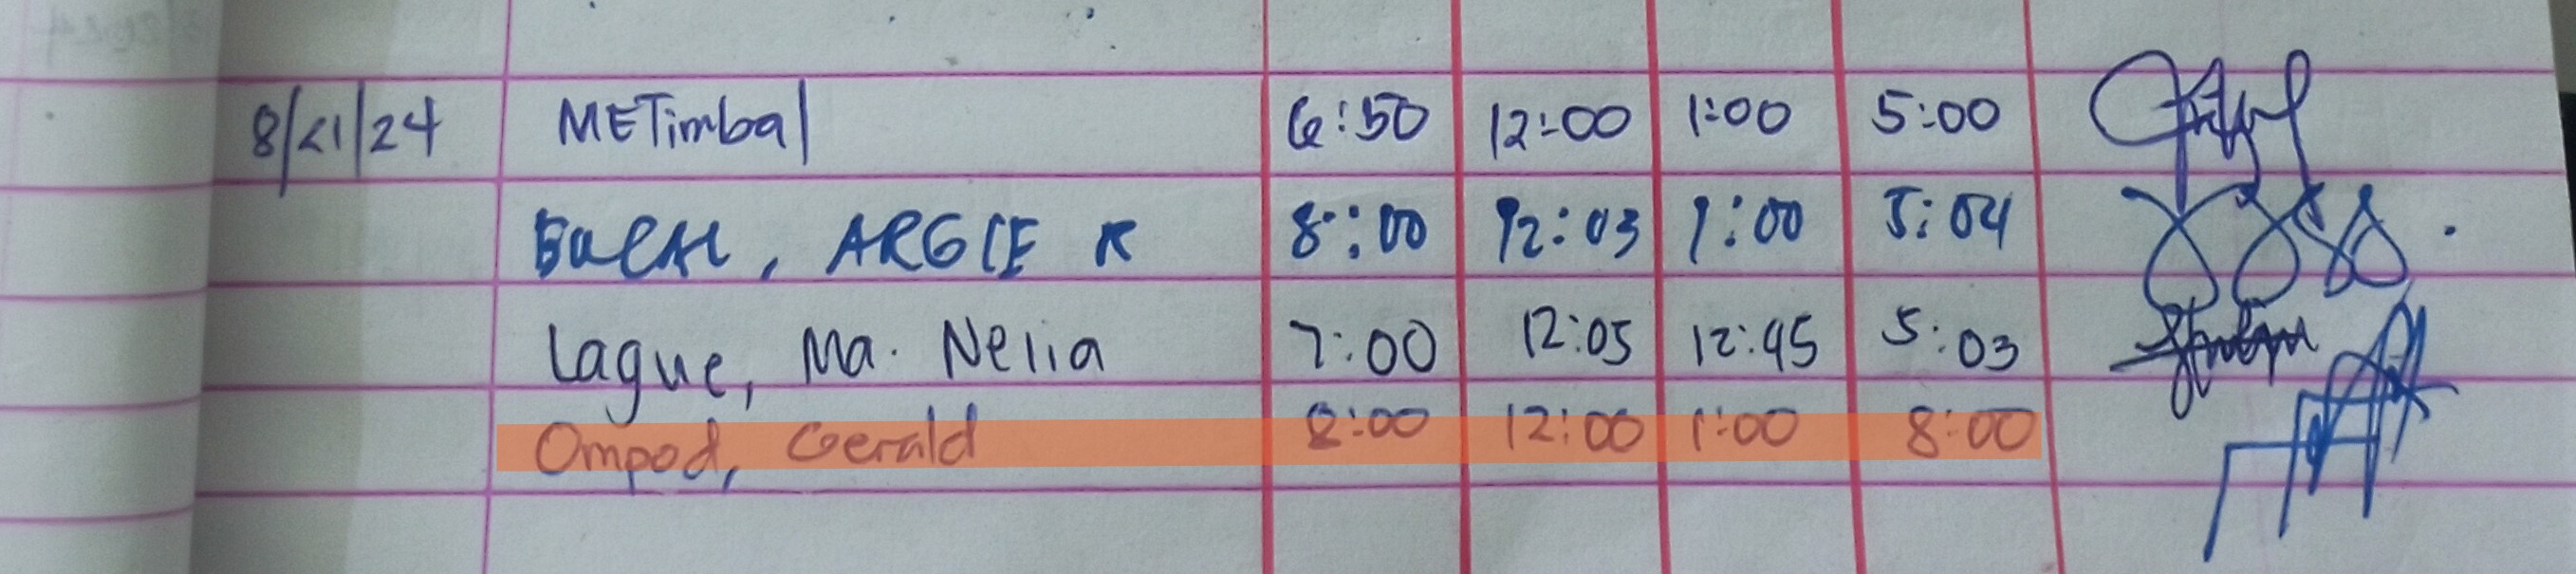 8/21/24 METimbal 6:50 12:00 1:00 5:00
ARGIE R 8:00 12:03 1:00 5:04
Lague, Ma. Nelia 7:00 12:05 12:45 5:03
Ompod, Gerald 8:00 12:00 1:00 8:00